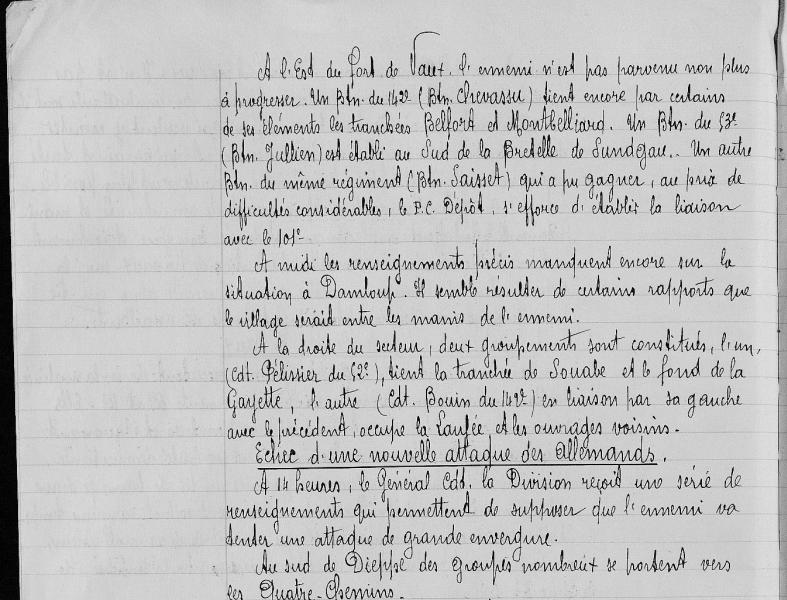 A l'Est du fort de Vaux, l'ennemi n'est pas parvenu non plus
à progresser. Un Btn. du 142e (Btn. Chevassu) tient encore par certains
de ses éléments les tranchées Belfort et Montbelliard. Un Btn. du 53e
(Btn. Jullien) est établi au Sud de la Bretelle de Sundgau.. Un autre
Btn. du même régiment (Btn. Saisset) qui a pu gagner, au prix de
difficultés considérables, le P.C. Dépôt, s'efforce d'établir la liaison
avec le 101e
A midi les renseignements précis manquent encore sur la
situation à Damloup. Il semble résulter de certains rapports que
le village serait entre les mains de l'ennemi.
A la droite du secteur, deux groupements sont constitués, l'un,
(Cdt. Pélissier du 52e), tient la tranchée de Souabe et le fond de la
Gayette, l'autre (Cdt. Bouin du 142e) en liaison par sa gauche
avec le précédent, occupe la Laufée et les ouvrages voisins.
Echec d'une nouvelle attaque des Allemands.
A 14 heures, le Général Cdt. la Division reçoit une série de
renseignements qui permettent de supposer que l'ennemi va
tenter une attaque de grande envergure.
Au sud de Dieppe des groupes nombreux se portent vers
les Quatre-Chemins.